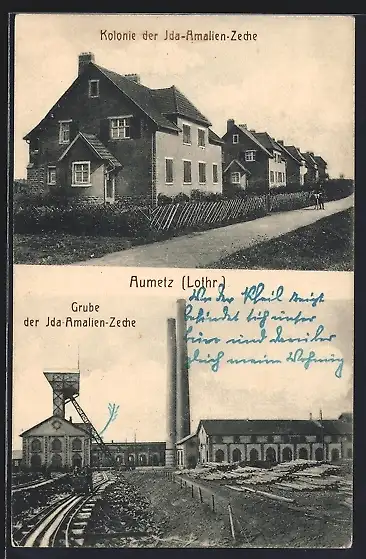 Kolonie der Jda-Amalien-Zeche
Aumetz (Lothr.)
Grube
der Jda-Amalien-Zeche
Wo der Pfeil zeigt
befindet sich unser
und
gleich meine Wohnung